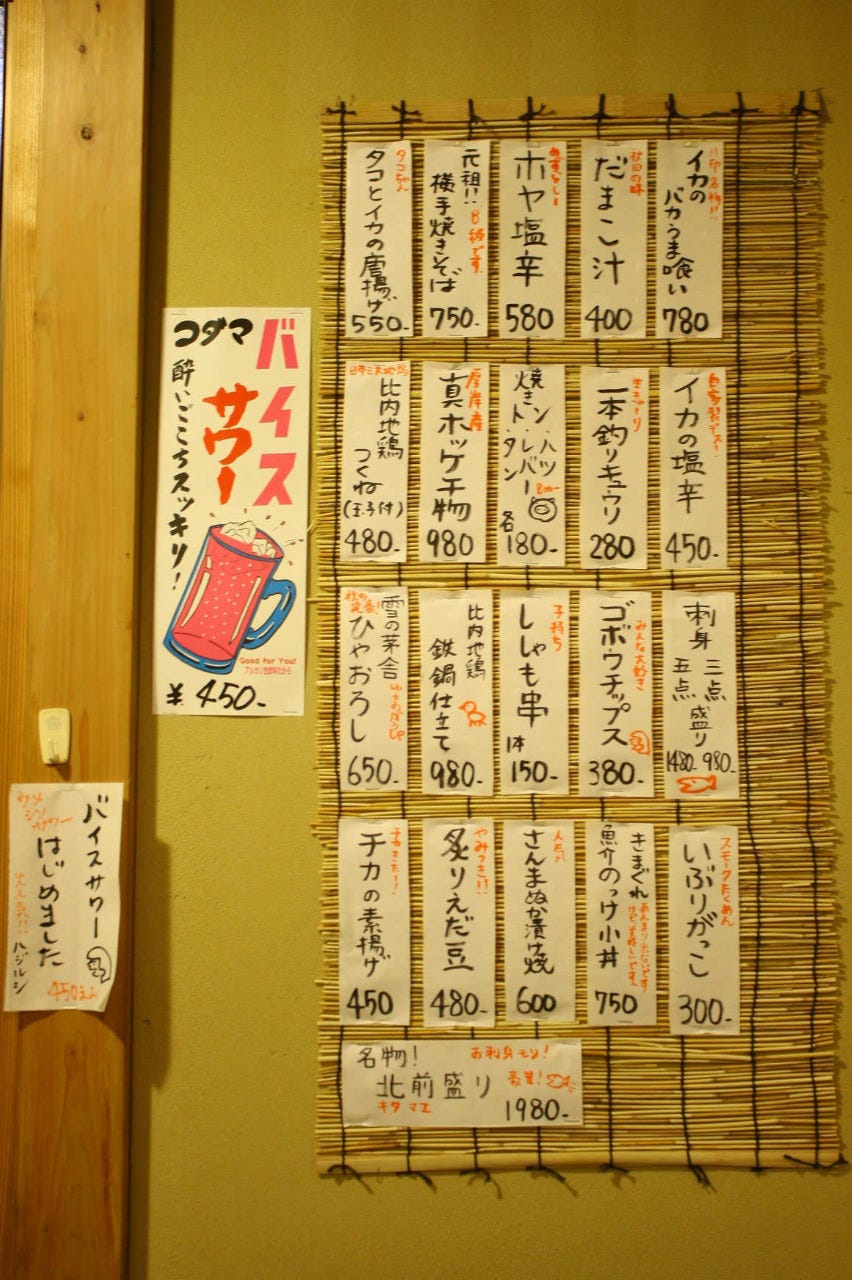 八印名物!!
イカの
バカうま喰い
780
秋田の味
だまこ汁
400
めずらしー
ホヤ塩辛
580
元祖!! B級です。
横手焼きそば
750-
タコちゃん
タコとイカの唐揚げ
550-
自家製デスー!
イカの塩辛
450-
一本釣りキュウリ
280
焼きトン
ハツ
レバー
タン
各
180-
厚岸産
真ホッケ干物
980
日本三大地鶏
比内地鶏
つくね
(玉子付)
480-
刺身
三点
五点
盛り
1480- 980-
みんな大好き
ゴボウチップス
380-
子持ち
ししゃも串
1本
150-
比内地鶏
鉄鍋仕立て
980-
秋の定番!
雪の茅舎
ひやおろし
650-
スモークたくあん
いぶりがっこ
300-
きまぐれ
魚介のっけ小丼
750
さんまぬか漬け焼
600
やみつき!!
炙りえだ豆
480-
チカの素揚げ
450
名物!
お刺身モリ!
北前盛り
キタマエ
豪華!
1980-
バイス
サワー
コダマ
酔いごこちスッキリ!
Good for You!
アルカリ性飲料だから
¥450-
バイスサワー
はじめました
ウメ
シソ
サワー
大人気!!
ハジルシ
450えん